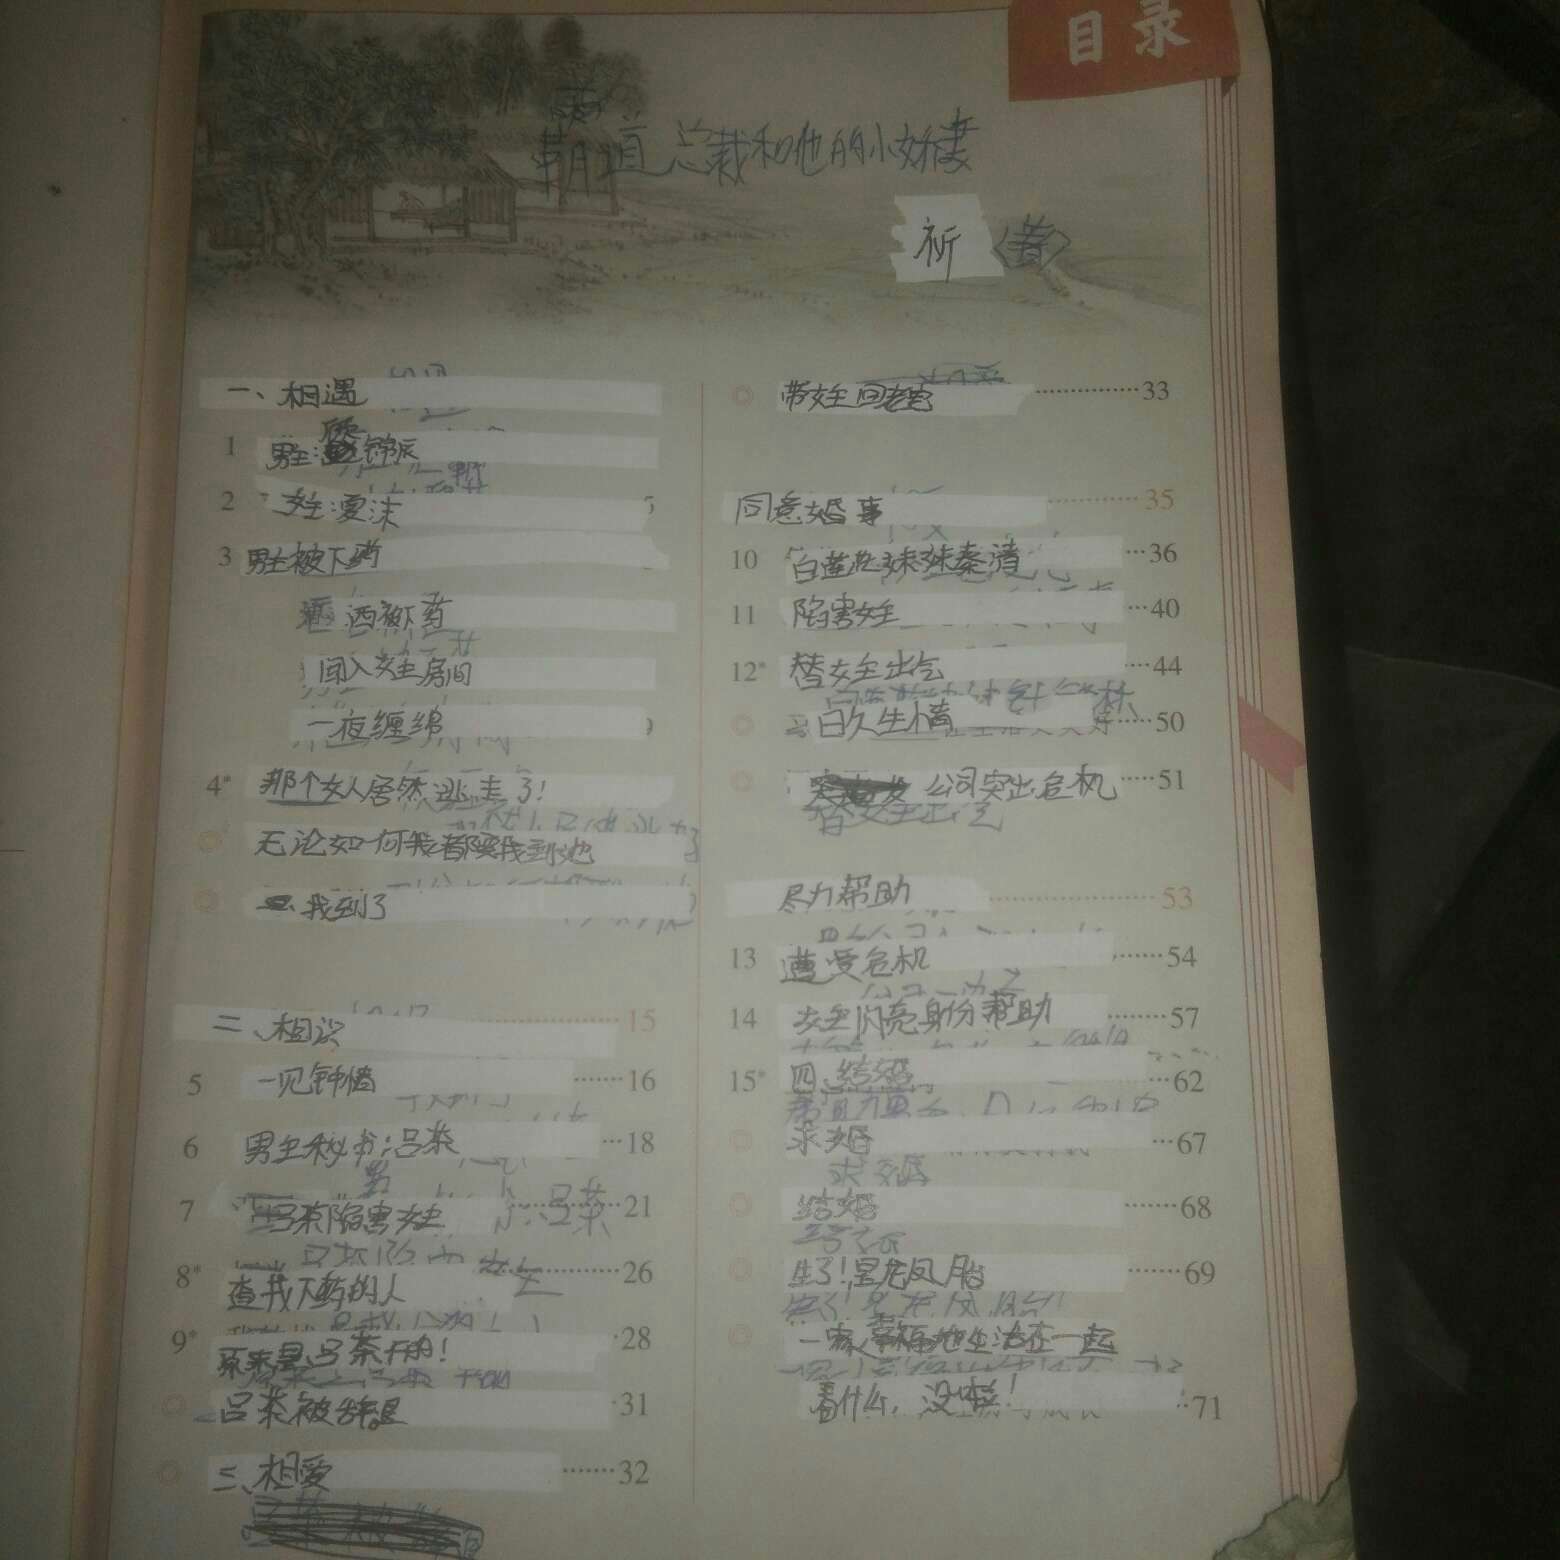 目录
霸道总裁和他的小娇妻
祈〈著〉
一、相遇
1 男主:顾锦辰
2 女主:夏沫
3 男主被下药
酒西被下药
闯入女主房间
一夜缠绵
4* 那个女人居然逃走了!
无论如何我都要找到她
找到了
二、相识 15
5 一见钟情 16
6 男主秘书:吕茶 18
7 吕茶陷害女主 21
8* 查找下药的人 26
9* 原来是吕茶干的! 28
吕茶被辞退 31
三、相爱 32
带女主回老宅 33
同意婚事 35
10 白莲花妹妹秦清 36
11 陷害女主 40
12* 替女主出气 44
日久生情 50
公司突出危机 51
尽力帮助 53
13 遭受危机 54
14 女主闪亮身份帮助 57
15* 四、结婚 62
求婚 67
结婚 68
生了!是龙凤胎 69
一家幸福地生活在一起
看什么,没啦! 71